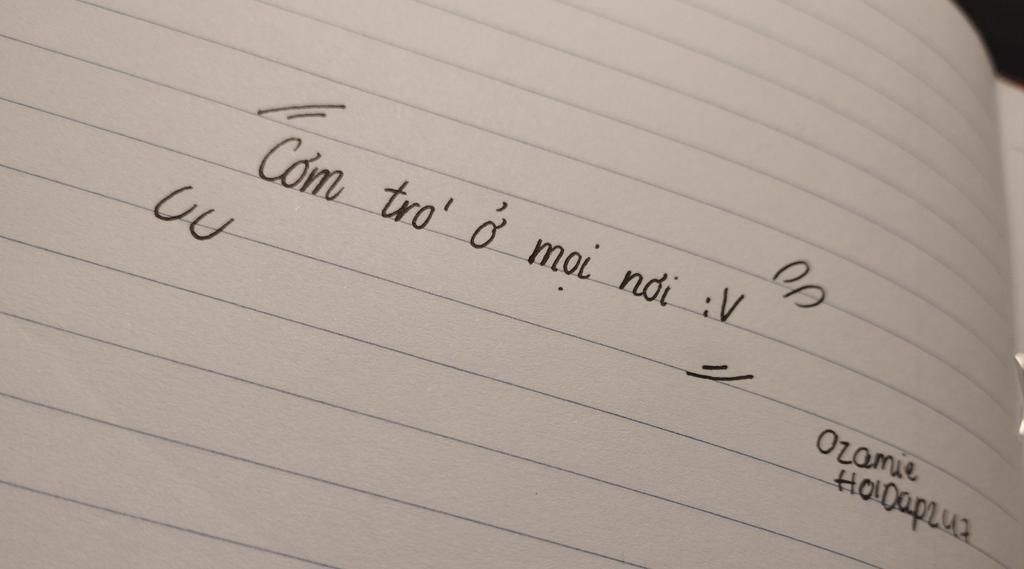 Cơm tró ở mọi nơi :V
Ozamie
HoiDap247